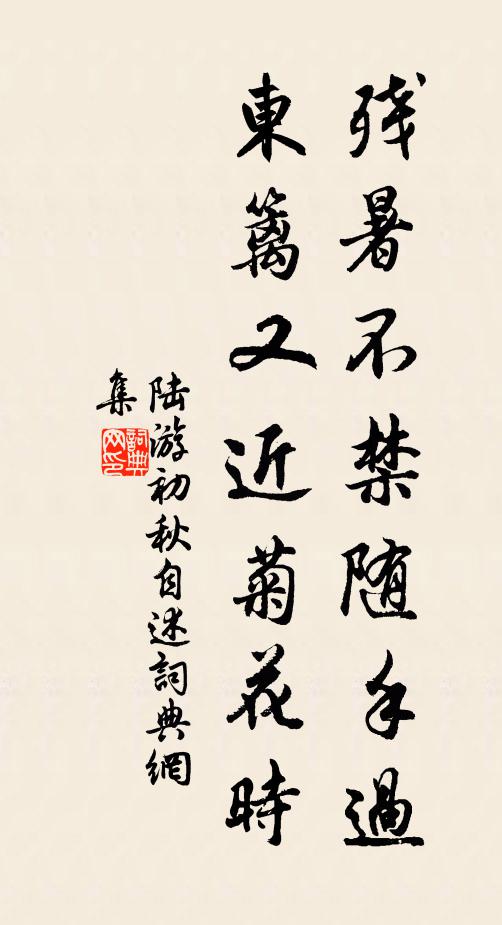 残暑不禁随手過
東籬又近菊花時
陆游初秋自述詞典網
集
詞典网印